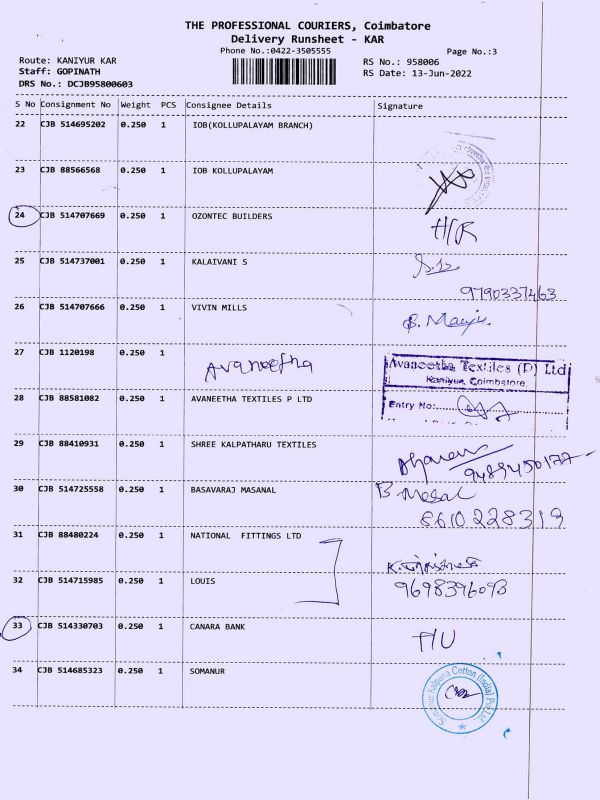 THE PROFESSIONAL COURIERS, Coimbatore
Delivery Runsheet - KAR
Phone No.:0422-3505555
Page No.:3
Route: KANIYUR KAR
RS No.: 958006
Staff: GOPINATH
RS Date: 13-Jun-2022
DRS No.: DCJB95800603
S No Consignment No Weight PCS Consignee Details Signature
22 CJB 514695202 0.250 1 IOB(KOLLUPALAYAM BRANCH)
23 CJB 88566568 0.250 1 IOB KOLLUPALAYAM
24 CJB 514707669 0.250 1 OZONTEC BUILDERS
25 CJB 514737001 0.250 1 KALAIVANI S
9790337463
26 CJB 514707666 0.250 1 VIVIN MILLS
27 CJB 1120198 0.250 1 Avaneetha
Avaneetha Textiles (P) Ltd
Kaniyur, Coimbatore.
28 CJB 88581082 0.250 1 AVANEETHA TEXTILES P LTD
Entry No:
29 CJB 88410931 0.250 1 SHREE KALPATHARU TEXTILES
9489450177
30 CJB 514725558 0.250 1 BASAVARAJ MASANAL
8610228319
31 CJB 88480224 0.250 1 NATIONAL FITTINGS LTD
32 CJB 514715985 0.250 1 LOUIS
33 CJB 514330703 0.250 1 CANARA BANK
34 CJB 514685323 0.250 1 SOMANUR
Somanur Kalpana Cotton (India) Pvt Ltd